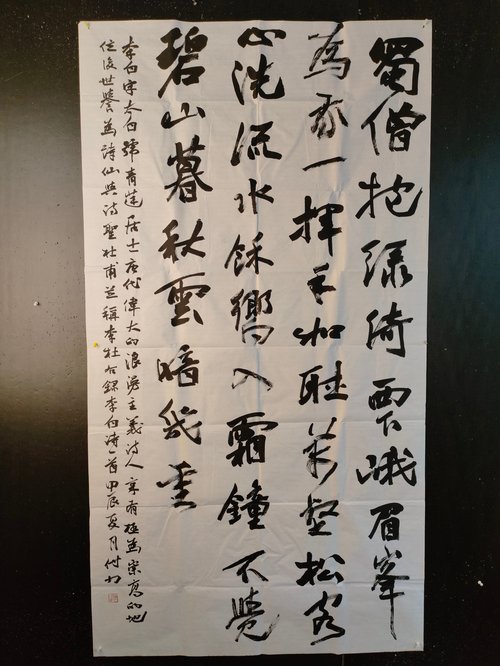 蜀僧抱綠綺西下峨眉峯
為我一揮手如聽萬壑松客
心洗流水餘響入霜鐘不覺
碧山暮秋雲暗幾重
李白字太白號青蓮居士唐代偉大的浪漫主義詩人享有極為崇高的地
位後世譽為詩仙與詩聖杜甫並稱李杜今錄李白詩一首甲辰夏月